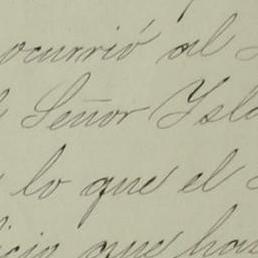 ocurrió al
Señor Ysla
lo que el
que